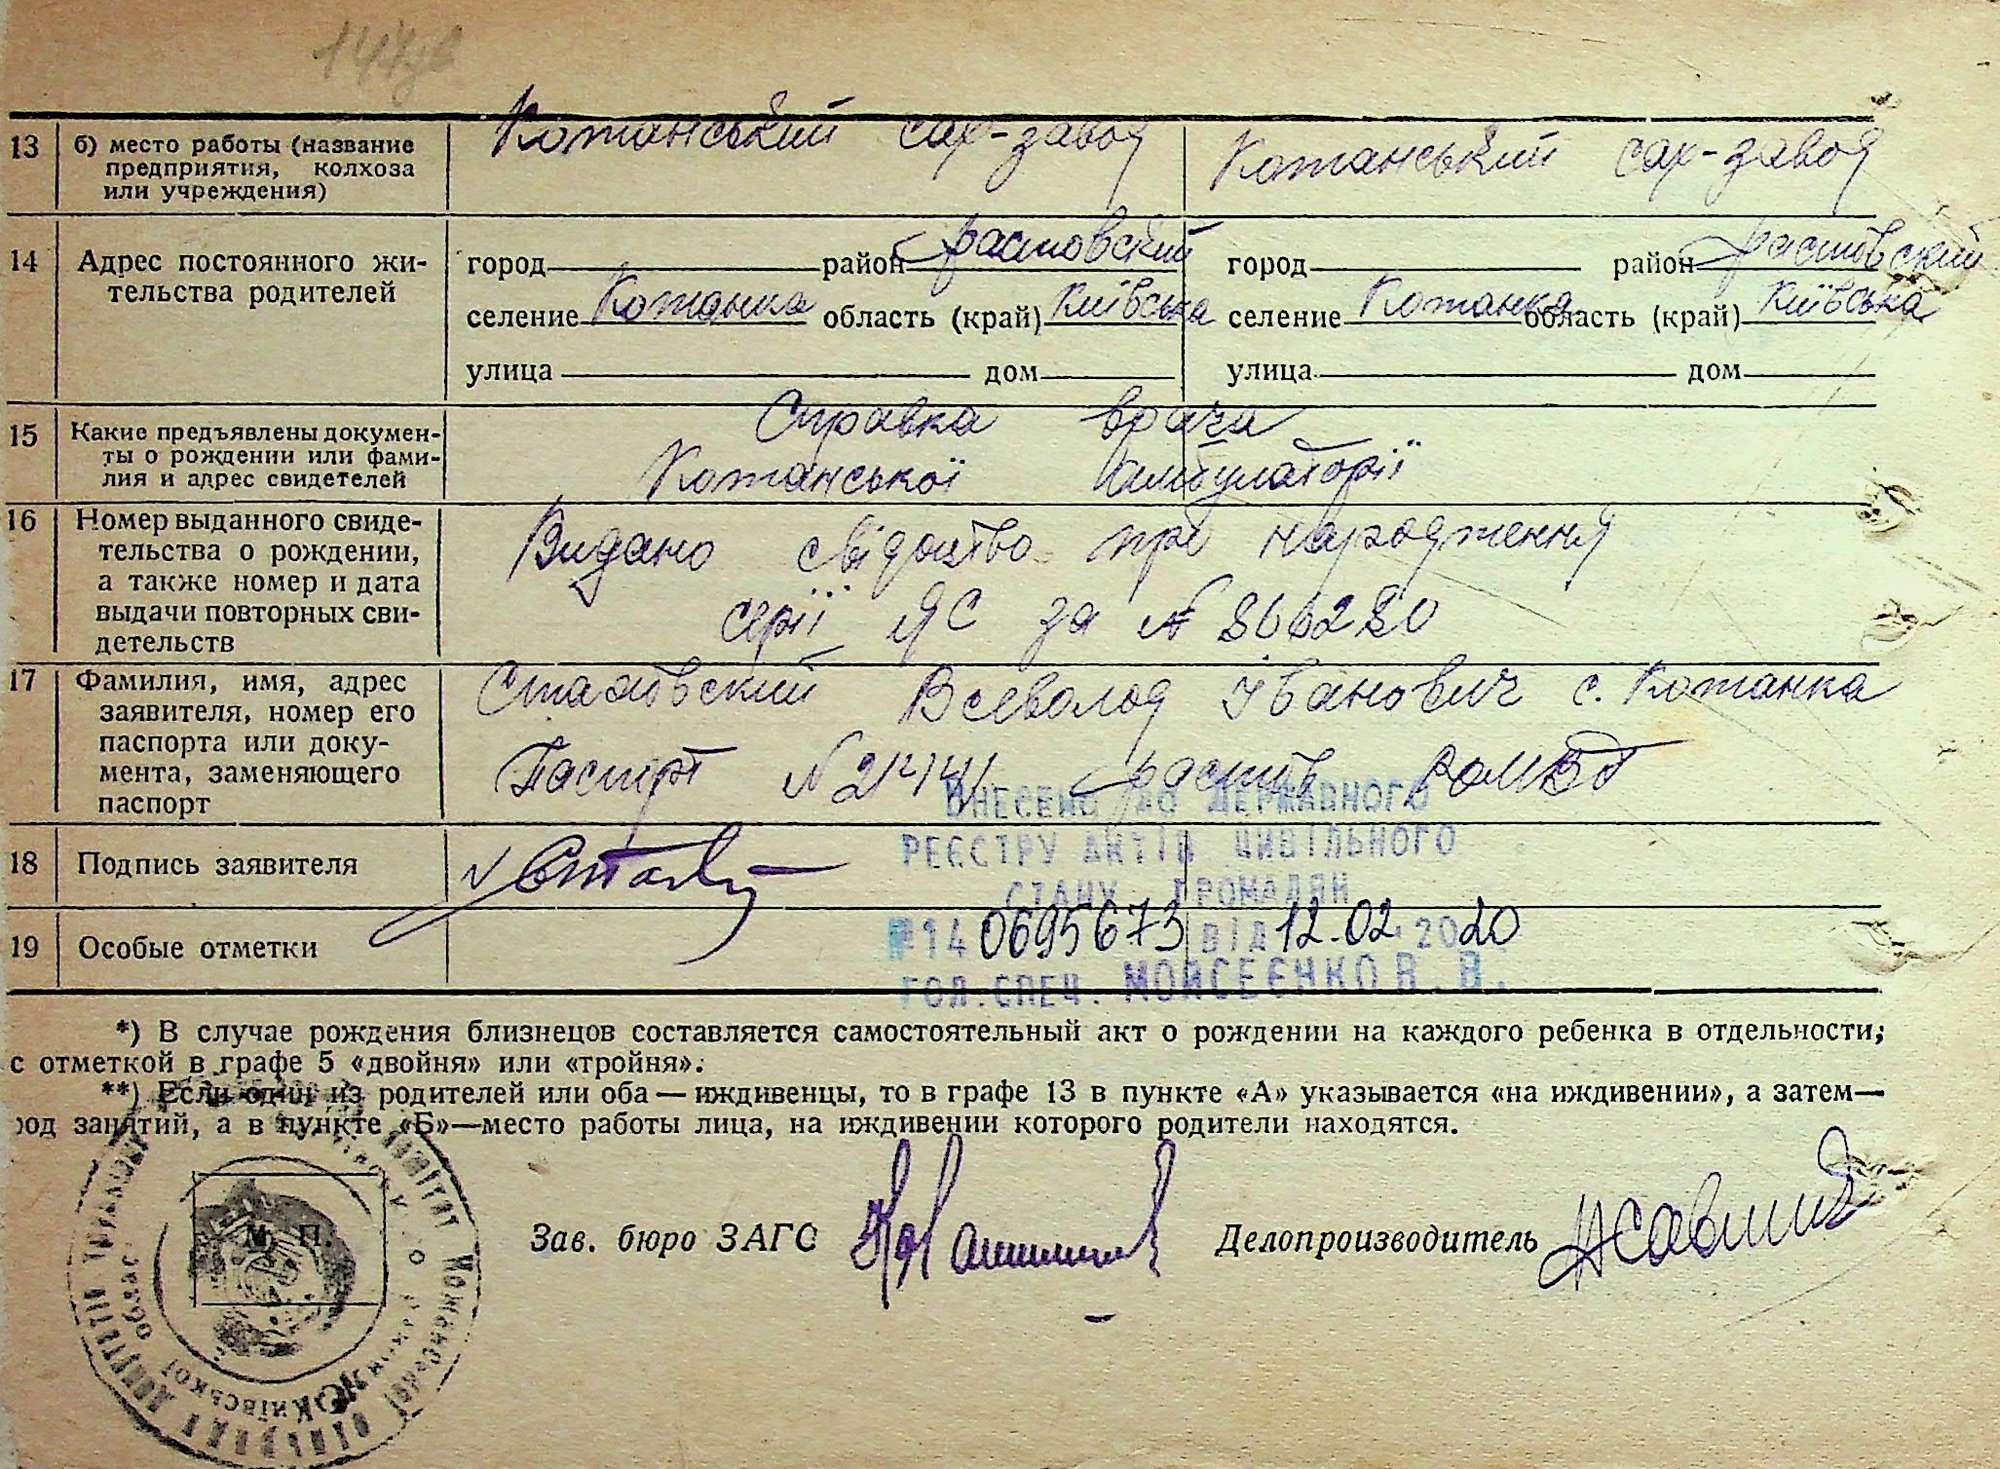 13 б) место работы (название
предприятия, колхоза
или учреждения)
Кожанський сах-завод
Кожанський сах-завод
14 Адрес постоянного жи-
тельства родителей
город район Фастовский
селение Кожанка область (край) Київська
улица дом
город район Фастовский
селение Кожанка область (край) Київська
улица дом
15 Какие предъявлены докумен-
ты о рождении или фами-
лия и адрес свидетелей
Справка врача
Кожанської амбулаторії
16 Номер выданного свиде-
тельства о рождении,
а также номер и дата
выдачи повторных сви-
детельств
Видано свідоцтво про народження
серії ЯС за №
17 Фамилия, имя, адрес
заявителя, номер его
паспорта или доку-
мента, заменяющего
паспорт
Всеволод Іванович с. Кожанка
Паспорт Фастів
ВНЕСЕНО ДО ДЕРЖАВНОГО
РЕЄСТРУ АКТІВ ЦИВІЛЬНОГО
СТАНУ ГРОМАДЯН
18 Подпись заявителя
№14 0695673 від 12.02.2020
19 Особые отметки
ГОЛ.СПЕЦ. МОЙСЕЄНКО В.В.
*) В случае рождения близнецов составляется самостоятельный акт о рождении на каждого ребенка в отдельности,
с отметкой в графе 5 «двойня» или «тройня».
**) Если один из родителей или оба — иждивенцы, то в графе 13 в пункте «А» указывается «на иждивении», а затем—
род занятий, а в пункте «Б»—место работы лица, на иждивении которого родители находятся.
М. П.
Зав. бюро ЗАГС
Делопроизводитель